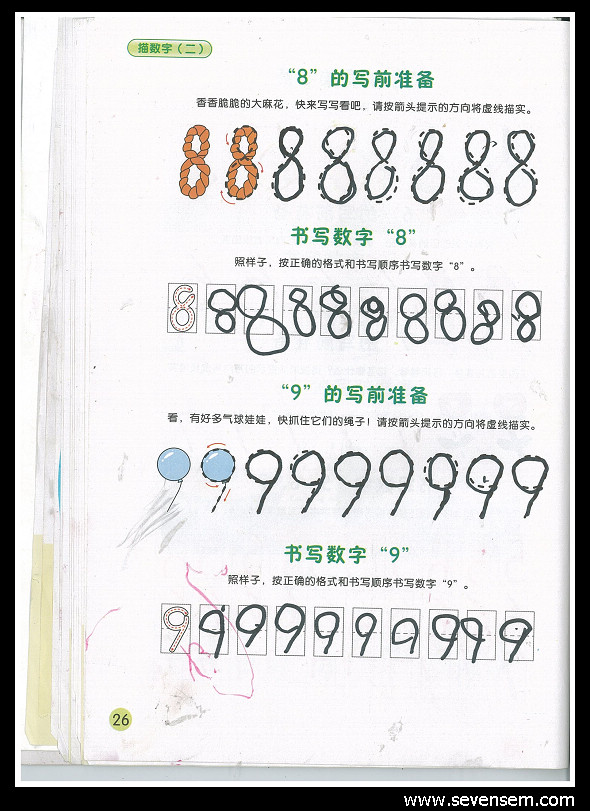 描数字（二）
“8”的写前准备
香香脆脆的大麻花，快来写写看吧，请按箭头提示的方向将虚线描实。
8 8 8 8 8 8 8 8
书写数字“8”
照样子，按正确的格式和书写顺序书写数字“8”。
8 8 8 8 8 8 8 8 8 8
“9”的写前准备
看，有好多气球娃娃，快抓住它们的绳子！请按箭头提示的方向将虚线描实。
9 9 9 9 9 9 9 9
书写数字“9”
照样子，按正确的格式和书写顺序书写数字“9”。
9 9 9 9 9 9 9 9 9 9
26
www.sevensem.com